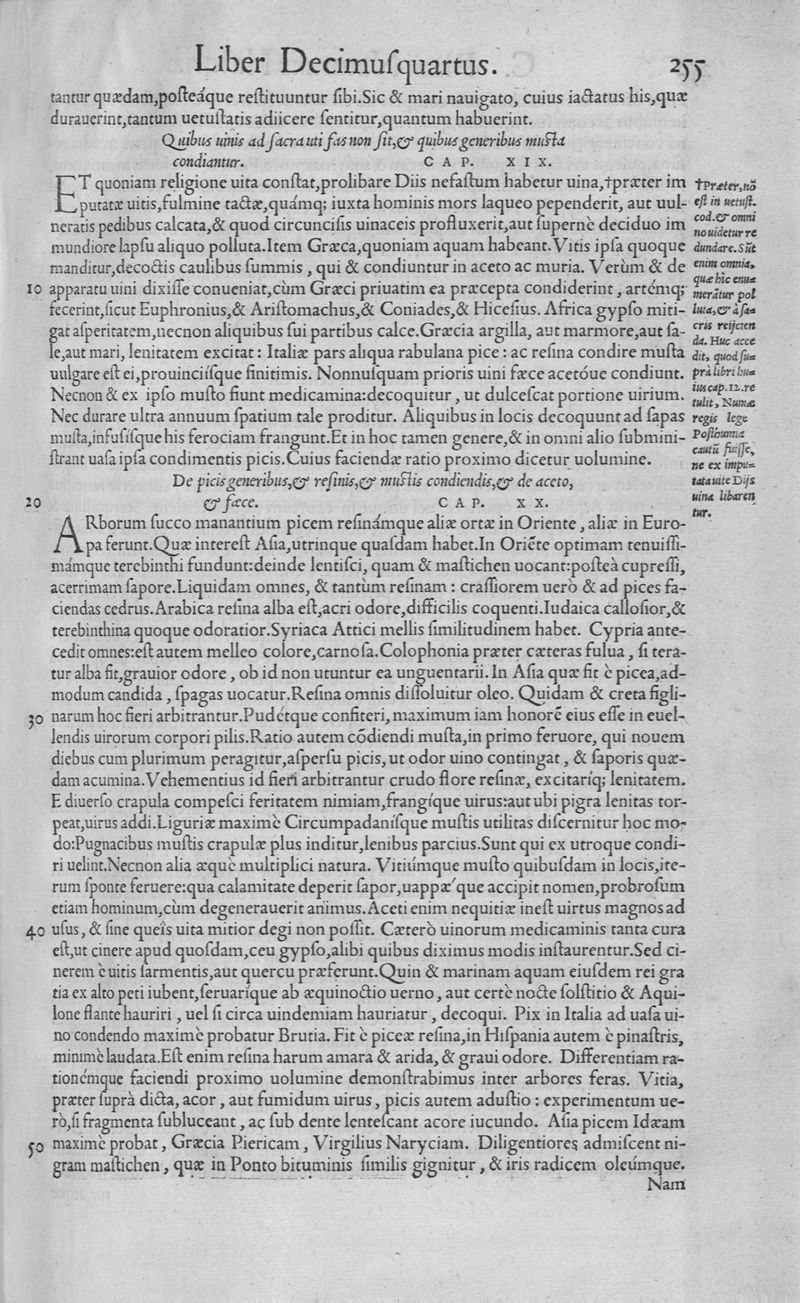 Liber Decimuſquartus. 255
tantur quædam,poſteáque reſtituuntur ſibi.Sic & mari nauigato, cuius iactatus his,quæ
durauerint,tantum uetuſtatis adiicere ſentitur,quantum habuerint.
Quibus uinis ad ſacra uti fas non ſit,& quibus generibus muſta
condiantur. CAP. XIX.
ET quoniam religione uita conſtat,prolibare Diis nefaſtum habetur uina,†præter im
putatæ uitis,fulmine tactæ,quámq; iuxta hominis mors laqueo pependerit, aut uul-
neratis pedibus calcata,& quod circunciſis uinaceis profluxerit,aut ſupernè deciduo im
mundiore lapſu aliquo polluta.Item Græca,quoniam aquam habeant.Vitis ipſa quoque
manditur,decoctis caulibus ſummis , qui & condiuntur in aceto ac muria. Verùm & de
10 apparatu uini dixiſſe conueniat,cùm Græci priuatim ea præcepta condiderint , artémq;
fecerint,ſicut Euphronius,& Ariſtomachus,& Coniades,& Hiceſius. Africa gypſo miti-
gat aſperitatem,necnon aliquibus ſui partibus calce.Græcia argilla, aut marmore,aut ſa-
le,aut mari, lenitatem excitat : Italiæ pars aliqua rabulana pice : ac reſina condire muſta
uulgare eſt ei,prouinciiſque finitimis. Nonnuſquam prioris uini fæce acetóue condiunt.
Necnon & ex ipſo muſto fiunt medicamina:decoquitur , ut dulceſcat portione uirium.
Nec durare ultra annuum ſpatium tale proditur. Aliquibus in locis decoquunt ad ſapas
muſta,infuſiſque his ferociam frangunt.Et in hoc tamen genere,& in omni alio ſubmini-
ſtrant uaſa ipſa condimentis picis.Cuius faciendæ ratio proximo dicetur uolumine.
De picis generibus,& reſinis,& muſtis condiendis,& de aceto,
20 & fæce. CAP. XX.
ARborum ſucco manantium picem reſinámque aliæ ortæ in Oriente , aliæ in Euro-
pa ferunt.Quæ intereſt Aſia,utrinque quaſdam habet.In Oriēte optimam tenuiſſi-
mámque terebinthi fundunt:deinde lentiſci, quam & maſtichen uocant:poſteà cupreſſi,
acerrimam ſapore.Liquidam omnes, & tantùm reſinam : craſſiorem uerò & ad pices fa-
ciendas cedrus.Arabica reſina alba eſt,acri odore,difficilis coquenti.Iudaica calloſior,&
terebinthina quoque odoratior.Syriaca Attici mellis ſimilitudinem habet. Cypria ante-
cedit omnes:eſt autem melleo colore,carnoſa.Colophonia præter cæteras fulua , ſi tera-
tur alba fit,grauior odore , ob id non utuntur ea unguentarii. In Aſia quæ fit è picea,ad-
modum candida , ſpagas uocatur.Reſina omnis diſſoluitur oleo. Quidam & creta figli-
30 narum hoc fieri arbitrantur.Pudétque confiteri, maximum iam honorē eius eſſe in euel-
lendis uirorum corpori pilis.Ratio autem cōdiendi muſta,in primo feruore, qui nouem
diebus cum plurimum peragitur,aſperſu picis, ut odor uino contingat , & ſaporis quæ-
dam acumina.Vehementius id fieri arbitrantur crudo flore reſinæ, excitaríq; lenitatem.
E diuerſo crapula compeſci feritatem nimiam,frangíque uirus:aut ubi pigra lenitas tor-
peat,uirus addi.Liguriæ maximè Circumpadaniſque muſtis utilitas diſcernitur hoc mo-
do:Pugnacibus muſtis crapulæ plus inditur,lenibus parcius.Sunt qui ex utroque condi-
ri uelint.Necnon alia æquè multiplici natura. Vitiúmque muſto quibuſdam in locis,ite-
rum ſponte feruere:qua calamitate deperit ſapor,uappæ´que accipit nomen,probroſum
etiam hominum,cùm degenerauerit animus.Aceti enim nequitiæ ineſt uirtus magnos ad
40 uſus, & ſine queîs uita mitior degi non poſſit. Cæterò uinorum medicaminis tanta cura
eſt,ut cinere apud quoſdam,ceu gypſo,alibi quibus diximus modis inſtaurentur.Sed ci-
nerem è uitis ſarmentis,aut quercu præferunt.Quin & marinam aquam eiuſdem rei gra
tia ex alto peti iubent,ſeruaríque ab æquinoctio uerno , aut certè nocte ſolſtitio & Aqui-
lone flante hauriri , uel ſi circa uindemiam hauriatur , decoqui. Pix in Italia ad uaſa ui-
no condendo maximè probatur Brutia. Fit è piceæ reſina,in Hiſpania autem è pinaſtris,
minimè laudata.Eſt enim reſina harum amara & arida, & graui odore. Differentiam ra-
tionémque faciendi proximo uolumine demonſtrabimus inter arbores feras. Vitia,
præter ſuprà dicta, acor , aut fumidum uirus , picis autem aduſtio : experimentum ue-
rò,ſi fragmenta ſubluceant , ac ſub dente lenteſcant acore iucundo. Aſia picem Idæam
50 maximè probat , Græcia Piericam , Virgilius Naryciam. Diligentiores admiſcent ni-
gram maſtichen , quæ in Ponto bituminis ſimilis gignitur , & iris radicem oleúmque.
Nam
†Præter,nō
eſt in uetuſt.
cod.& omni
no uidetur re
dundare.Sūt
enim omnia,
quæ hic enu=
merātur pol
luta,& à ſa=
cris reijcien
da. Huc acce
dit, quod ſu=
prà libri hu=
ius cap.12.re
tulit, Numæ
regis lege
Poſthumia
cautū fuiſſe,
ne ex impu=
tata uite Dijs
uina libaren
tur.